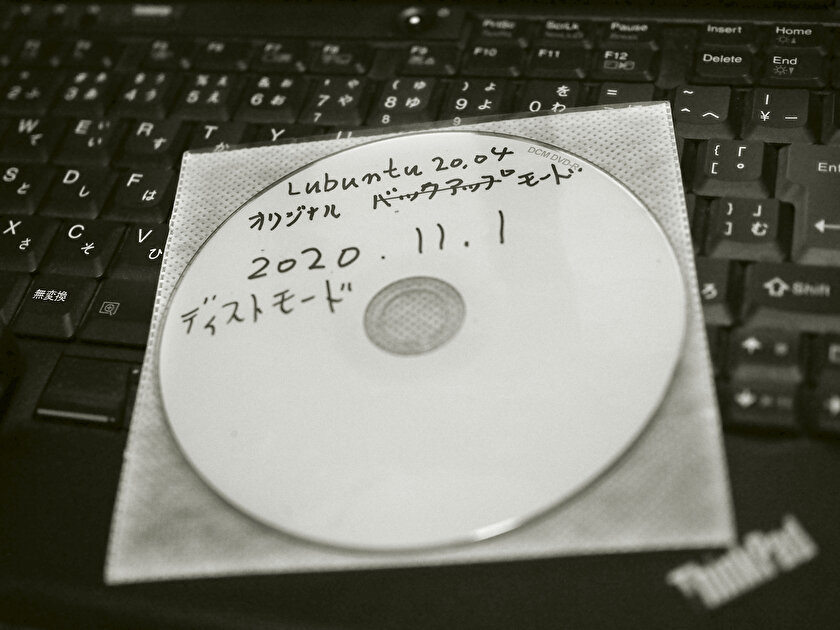 PrtSc ScrLk Pause Insert Home
F7 F8 F9 F10 F11 F12 Delete End
# 3 あ $ 4 う % 5 え & 6 お ' 7 や ( 8 ゆ ) 9 よ 0 を わ = ~ へ | ¥ ー
W て E い R す T か Y U { 「 [ ゜ Ent
S と D し F は } 」 ] む
X さ C そ V ひ ろ ⇧Shift
無変換
DCM DVD-R
Lubuntu 20.04
オリジナル バックアップモード
2020.11.1
ディストモード
ThinkPad